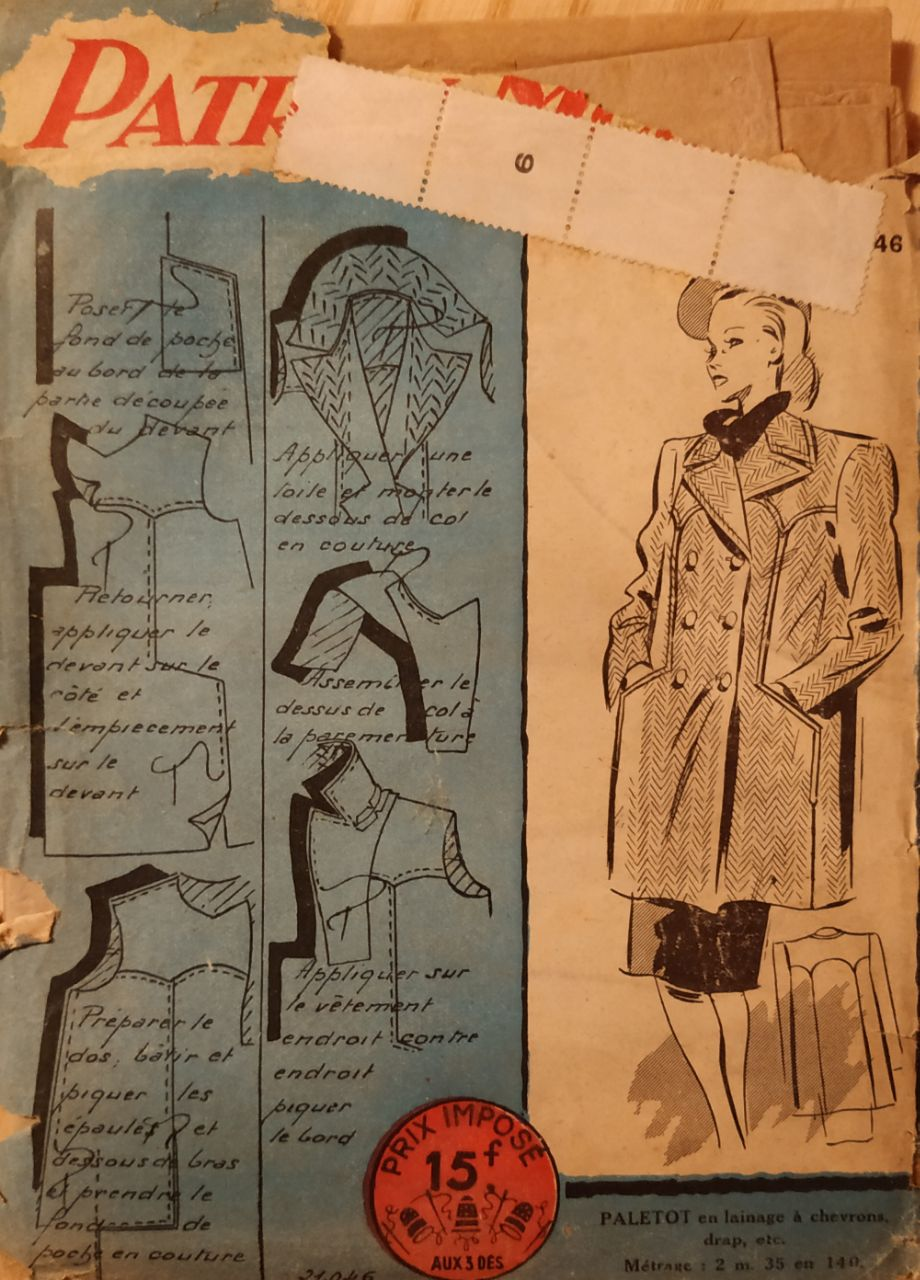 PATR
6
46
Poser le
fond de poche
au bord de la
partie découpée
du devant
Retourner,
appliquer le
devant sur le
côté et
l'empiecement
sur le
devant
Préparer le
dos, bâtir et
piquer les
épaules et
dessous de bras
et prendre le
fond de
poche en couture
Appliquer une
toile et monter le
dessous de col
en couture
Assembler le
dessus de col à
la parementure
Appliquer sur
le vêtement
endroit contre
endroit
piquer
le bord
PRIX IMPOSÉ
15f
AUX 3 DÉS
21.046
PALETOT en lainage à chevrons,
drap, etc.
Métrage : 2 m. 35 en 140.